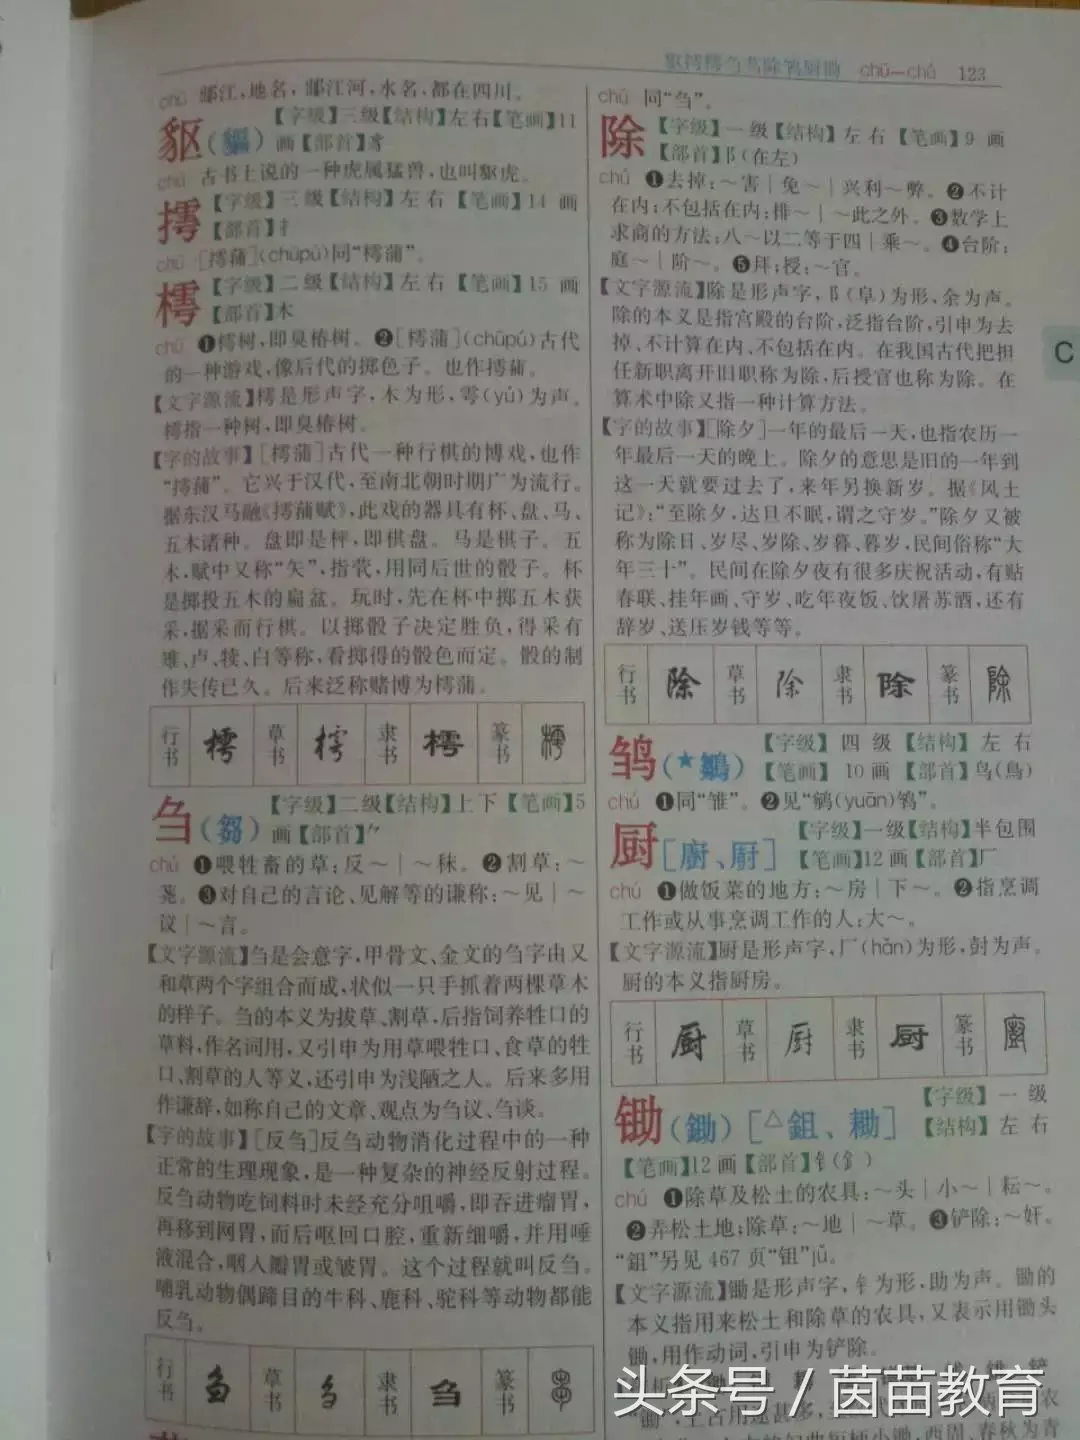 chū—chú 123
chū 䣝江,地名,䣝江河,水名,都在四川。
䝙(貙)【字级】三级【结构】左右【笔画】11
画【部首】豸
chū 古书上说的一种虎属猛兽,也叫䝙虎。
摴【字级】三级【结构】左右【笔画】14画
【部首】扌
chū [摴蒱](chūpú)同“樗蒲”。
樗【字级】二级【结构】左右【笔画】15画
【部首】木
chū ❶樗树,即臭椿树。❷[樗蒲](chūpú)古代
的一种游戏,像后代的掷色子。也作摴蒱。
【文字源流】樗是形声字,木为形,雩(yú)为声。
樗指一种树,即臭椿树。
【字的故事】[樗蒲]古代一种行棋的博戏,也作
“摴蒱”。它兴于汉代,至南北朝时期广为流行。
据东汉马融《摴蒱赋》,此戏的器具有杯、盘、马、
五木诸种。盘即是枰,即棋盘。马是棋子。五
木,赋中又称“矢”,指茕,用同后世的骰子。杯
是掷投五木的扁盆。玩时,先在杯中掷五木获
采,据采而行棋。以掷骰子决定胜负,得采有
雉、卢、犊、白等称,看掷得的骰色而定。骰的制
作失传已久。后来泛称赌博为樗蒲。
行书 樗 草书 樗 隶书 樗 篆书 樗
刍(芻)【字级】二级【结构】上下【笔画】5
画【部首】⺈
chú ❶喂牲畜的草:反～|～秣。❷割草:～
荛。❸对自己的言论、见解等的谦称:～见|～
议|～言。
【文字源流】刍是会意字,甲骨文、金文的刍字由又
和草两个字组合而成,状似一只手抓着两棵草木
的样子。刍的本义为拔草、割草,后指饲养牲口的
草料,作名词用,又引申为用草喂牲口、食草的牲
口、割草的人等义,还引申为浅陋之人。后来多用
作谦辞,如称自己的文章、观点为刍议、刍谈。
【字的故事】[反刍]反刍动物消化过程中的一种
正常的生理现象,是一种复杂的神经反射过程。
反刍动物吃饲料时未经充分咀嚼,即吞进瘤胃,
再移到网胃,而后呕回口腔,重新细嚼,并用唾
液混合,咽入瓣胃或皱胃。这个过程就叫反刍。
哺乳动物偶蹄目的牛科、鹿科、驼科等动物都能
反刍。
行书 刍 草书 刍 隶书 刍 篆书 芻
chú 同“刍”。
除【字级】一级【结构】左右【笔画】9画
【部首】阝(在左)
chú ❶去掉:～害|免～|兴利～弊。❷不计
在内;不包括在内:排～|～此之外。❸数学上
求商的方法:八～以二等于四|乘～。❹台阶:
庭～|阶～。❺拜;授:～官。
【文字源流】除是形声字,阝(阜)为形,余为声。
除的本义是指宫殿的台阶,泛指台阶,引申为去
掉、不计算在内、不包括在内。在我国古代把担
任新职离开旧职称为除,后授官也称为除。在
算术中除又指一种计算方法。
【字的故事】[除夕]一年的最后一天,也指农历一
年最后一天的晚上。除夕的意思是旧的一年到
这一天就要过去了,来年另换新岁。据《风土
记》:“至除夕,达旦不眠,谓之守岁。”除夕又被
称为除日、岁尽、岁除、岁暮、暮岁,民间俗称“大
年三十”。民间在除夕夜有很多庆祝活动,有贴
春联、挂年画、守岁、吃年夜饭、饮屠苏酒,还有
辞岁、送压岁钱等等。
行书 除 草书 除 隶书 除 篆书 除
鸰(★鶵)【字级】四级【结构】左右
【笔画】10画【部首】鸟(鳥)
chú ❶同“雏”。❷见“鹓(yuān)𬷕”。
厨[廚、㕑]【字级】一级【结构】半包围
【笔画】12画【部首】厂
chú ❶做饭菜的地方:～房|下～。❷指烹调
工作或从事烹调工作的人:大～。
【文字源流】厨是形声字,厂(hǎn)为形,尌为声。
厨的本义指厨房。
行书 厨 草书 厨 隶书 厨 篆书 廚
锄(鋤)[△鉏、耡]【字级】一级
【结构】左右
【笔画】12画【部首】钅(釒)
chú ❶除草及松土的农具:～头|小～|耘～。
❷弄松土地;除草:～地|～草。❸铲除:～奸。
“鉏”另见467页“钼”jǔ。
【文字源流】锄是形声字,钅为形,助为声。锄的
本义指用来松土和除草的农具,又表示用锄头
锄,用作动词,引申为铲除。
C
头条号 / 茵苗教育